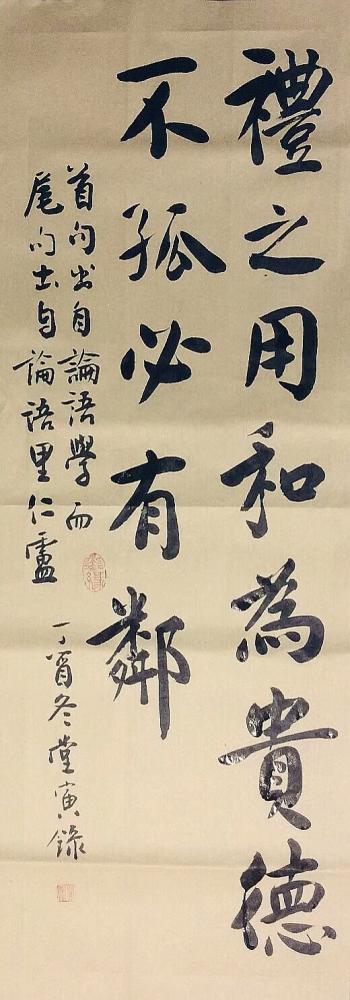 禮之用和為貴德
不孤必有鄰
首句出自論語學而
尾句出自論語里仁
丁酉冬堂寅錄